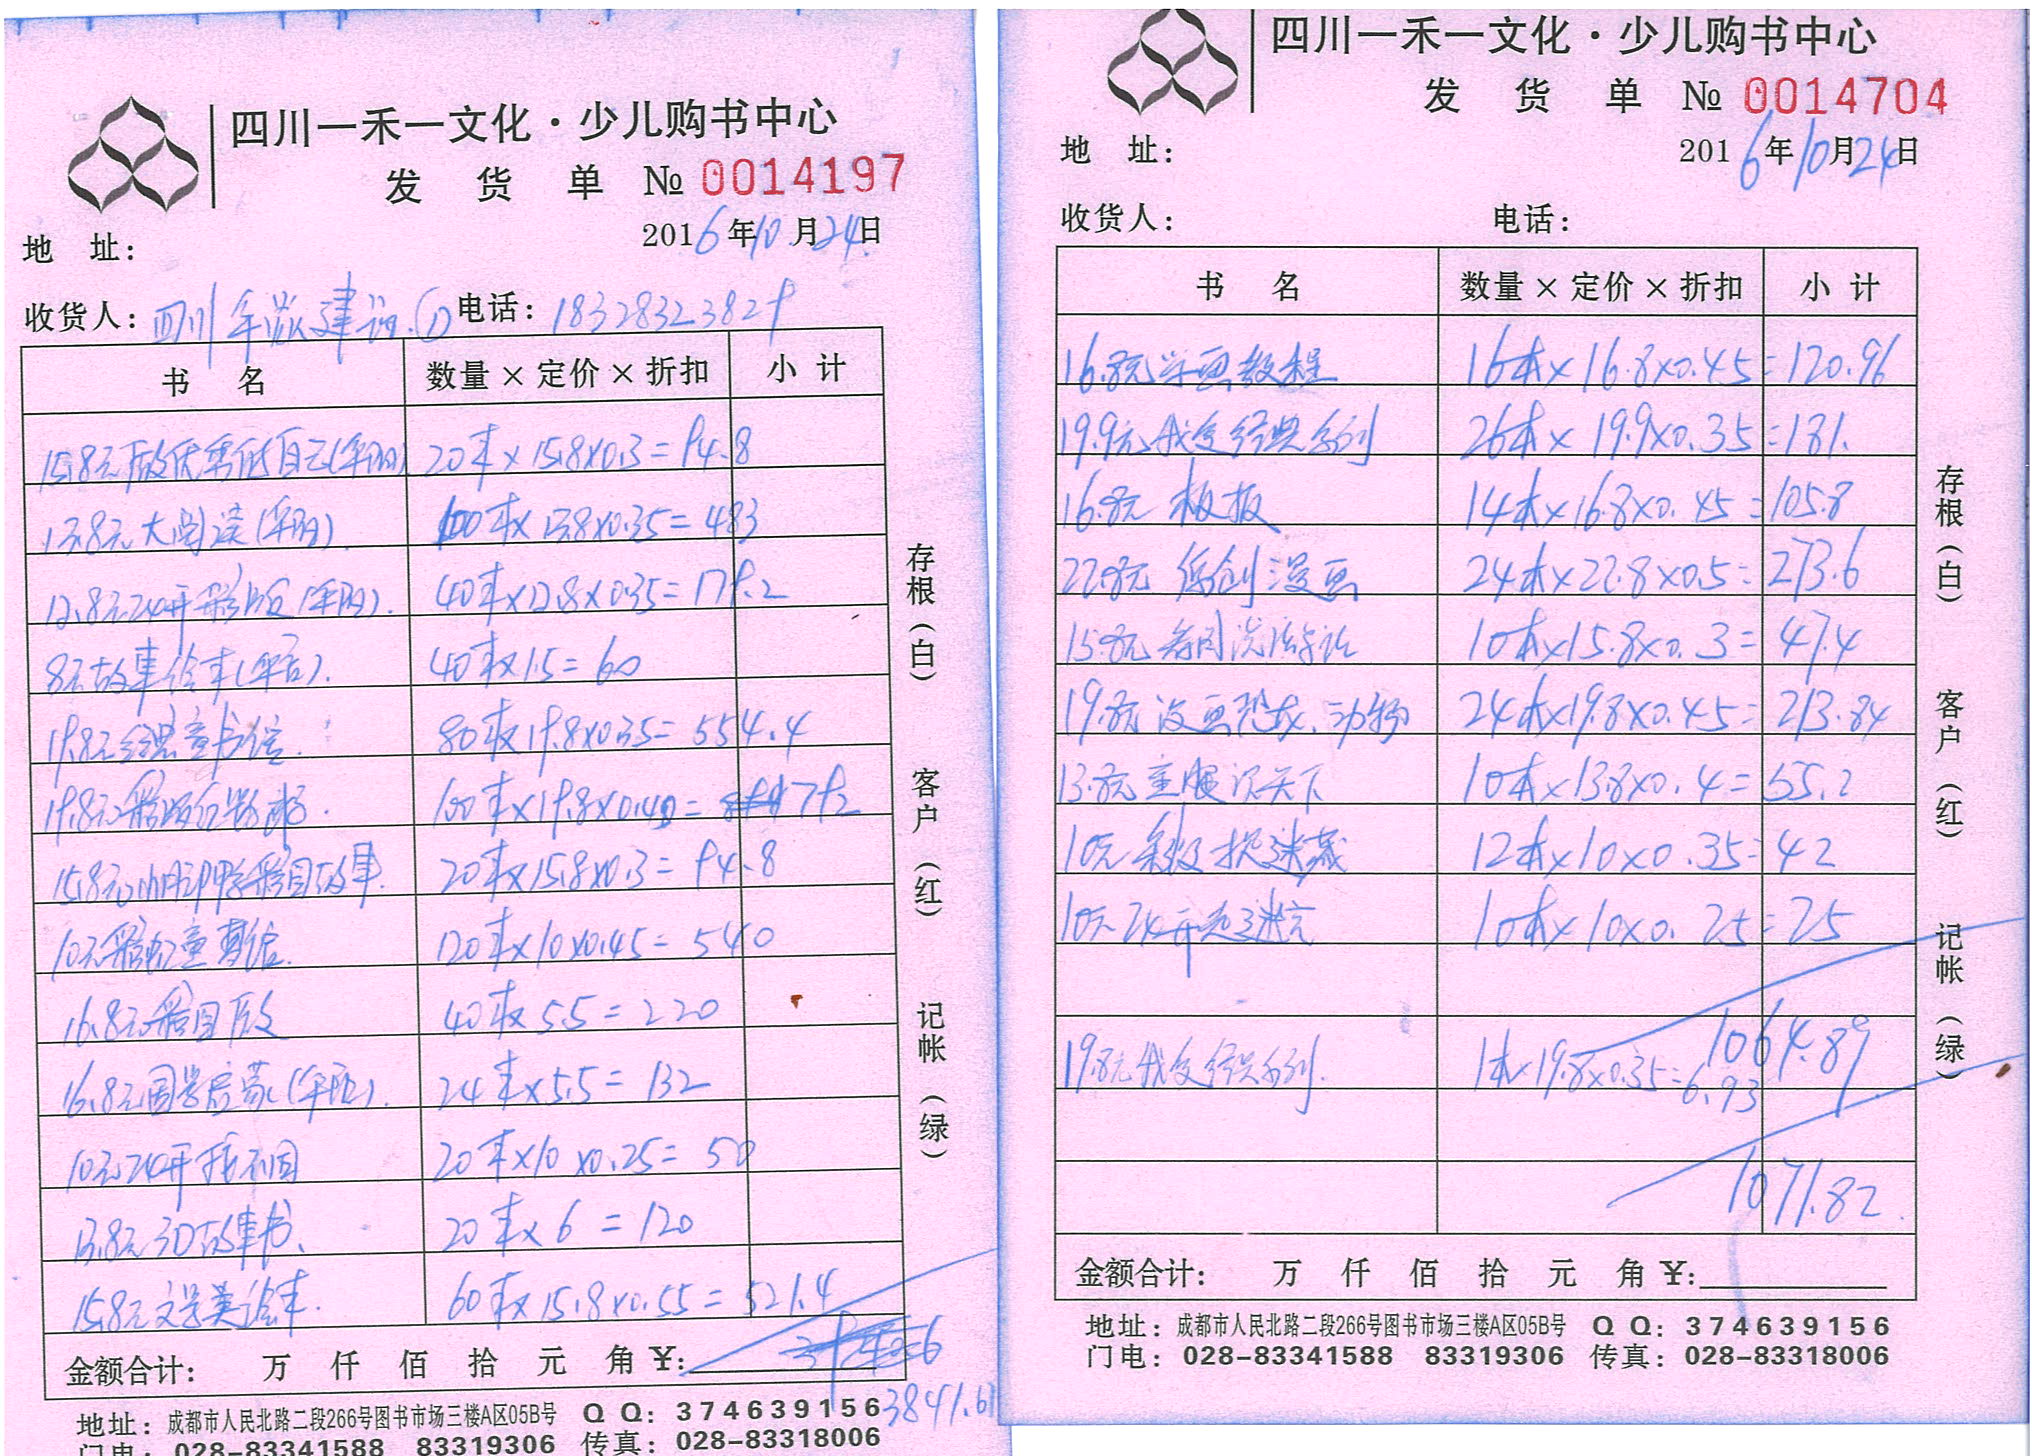 四川一禾一文化·少儿购书中心
发 货 单 № 0014197
2016年10月24日
地 址:
收货人: 四川 电话: 18328323829
书 名 数量×定价×折扣 小 计
15.8元 20本×15.8×0.3=94.8
13.8元大阅读 100本×13.8×0.35=483
12.8元24开 40本×12.8×0.35=179.2
8元故事绘本 40本×1.5=60
19.8元经典童书馆 80本×19.8×0.35=554.4
19.8元 100本×19.8×0.40=792
15.8元 故事 20本×15.8×0.3=94.8
10元 120本×10×0.45=540
16.8元 40本×5.5=220
16.8元国学启蒙 24本×5.5=132
10元24开找不同 20本×10×0.25=50
13.8元3D故事书 20本×6=120
15.8元文学美绘本 60本×15.8×0.55=521.4
金额合计: 万 仟 佰 拾 元 角 ¥:
3841.6
地址: 成都市人民北路二段266号图书市场三楼A区05B号 Q Q: 374639156
门电: 028-83341588 83319306 传真: 028-83318006
存根(白) 客户(红) 记帐(绿)
四川一禾一文化·少儿购书中心
发 货 单 № 0014704
地 址: 2016年10月24日
收货人: 电话:
书 名 数量×定价×折扣 小 计
16.8元学画教程 16本×16.8×0.45=120.96
19.9元我爱经典系列 26本×19.9×0.35=181.
16.8元 14本×16.8×0.45=105.8
22.8元原创漫画 24本×22.8×0.5=273.6
15.8元 10本×15.8×0.3=47.4
19.8元漫画恐龙、动物 24本×19.8×0.45=213.84
13.8元 10本×13.8×0.4=55.2
10元 捉迷藏 12本×10×0.35=42
10元24开走迷宫 10本×10×0.25=25
1064.89
19.8元我爱经典系列. 1本×19.8×0.35=6.93
1071.82.
金额合计: 万 仟 佰 拾 元 角 ¥:
地址: 成都市人民北路二段266号图书市场三楼A区05B号 Q Q: 374639156
门电: 028-83341588 83319306 传真: 028-83318006
存根(白) 客户(红) 记帐(绿)